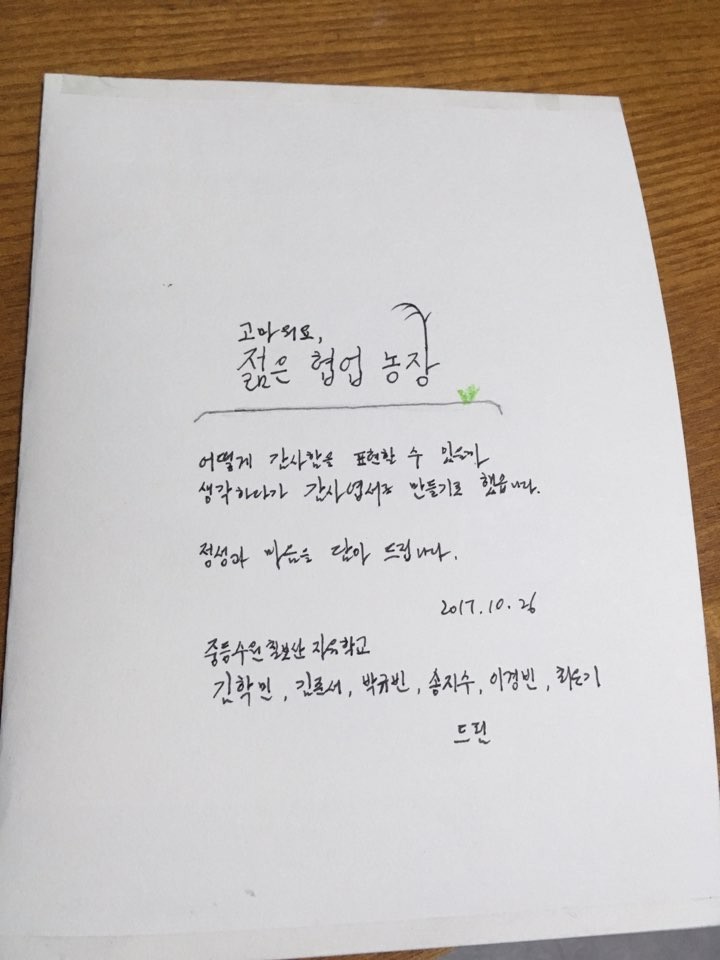 고마워요,
젊은 협업 농장
어떻게 감사함을 표현할 수 있을까
생각하다가 감사엽서를 만들기로 했습니다.
정성과 마음을 담아 드립니다.
2017.10.26
중등수원칠보산자유학교
김학민, 김준서, 박규빈, 송지수, 이경빈,
드림